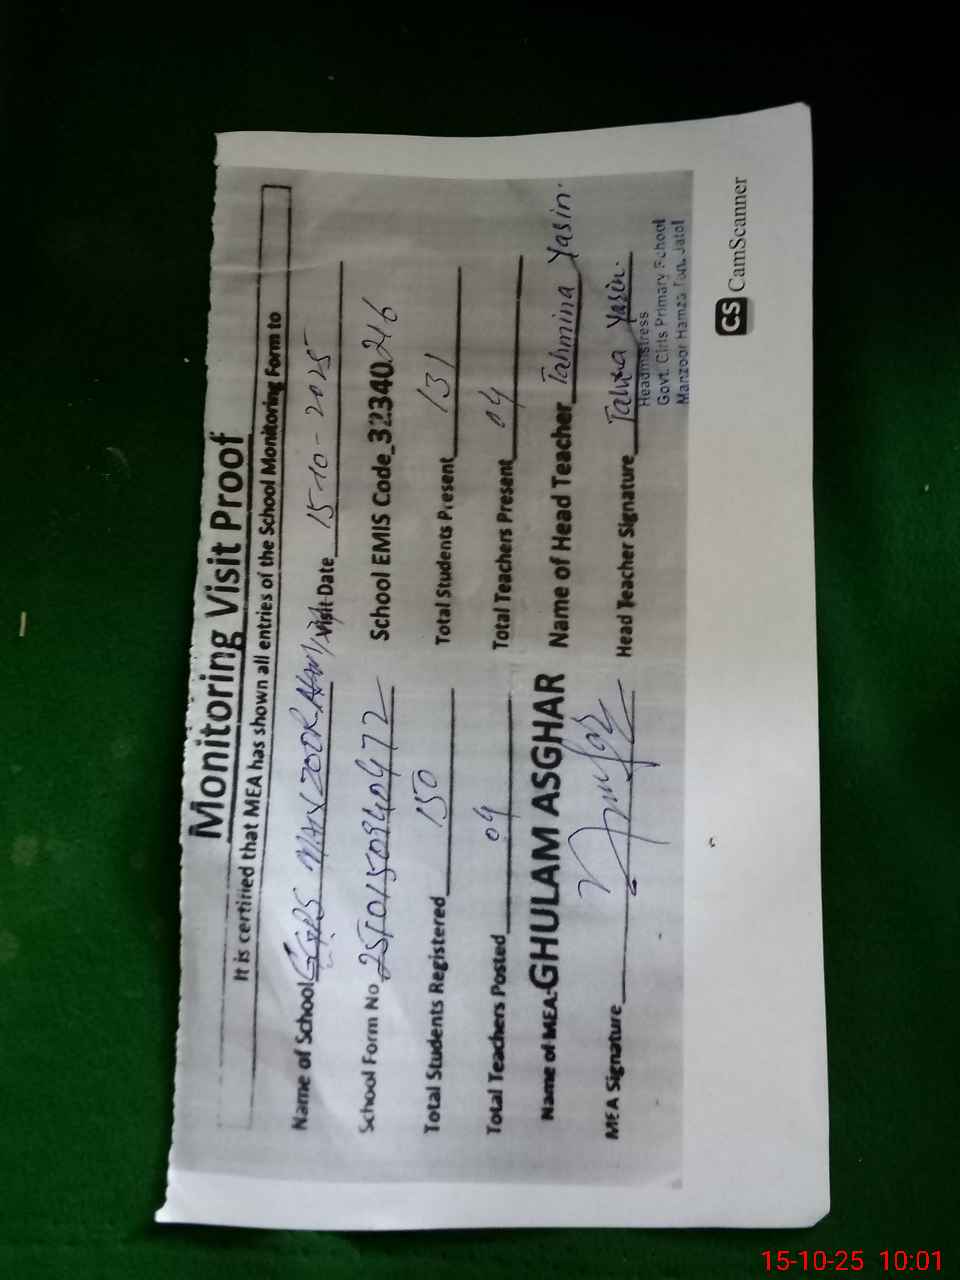 Monitoring Visit Proof
It is certified that MEA has shown all entries of the School Monitoring Form to
Name of School GGPS MANZOOR HAMZA Visit Date 15-10-2025
School Form No 2510150940472 School EMIS Code 32340216
Total Students Registered 150 Total Students Present 131
Total Teachers Posted 04 Total Teachers Present 04
Name of MEA: GHULAM ASGHAR Name of Head Teacher Tahmina Yasin.
MEA Signature Head Teacher Signature Yasin.
Headmistress
Govt. Girls Primary School
Manzoor Hamza Jatoi
CS CamScanner
15-10-25 10:01